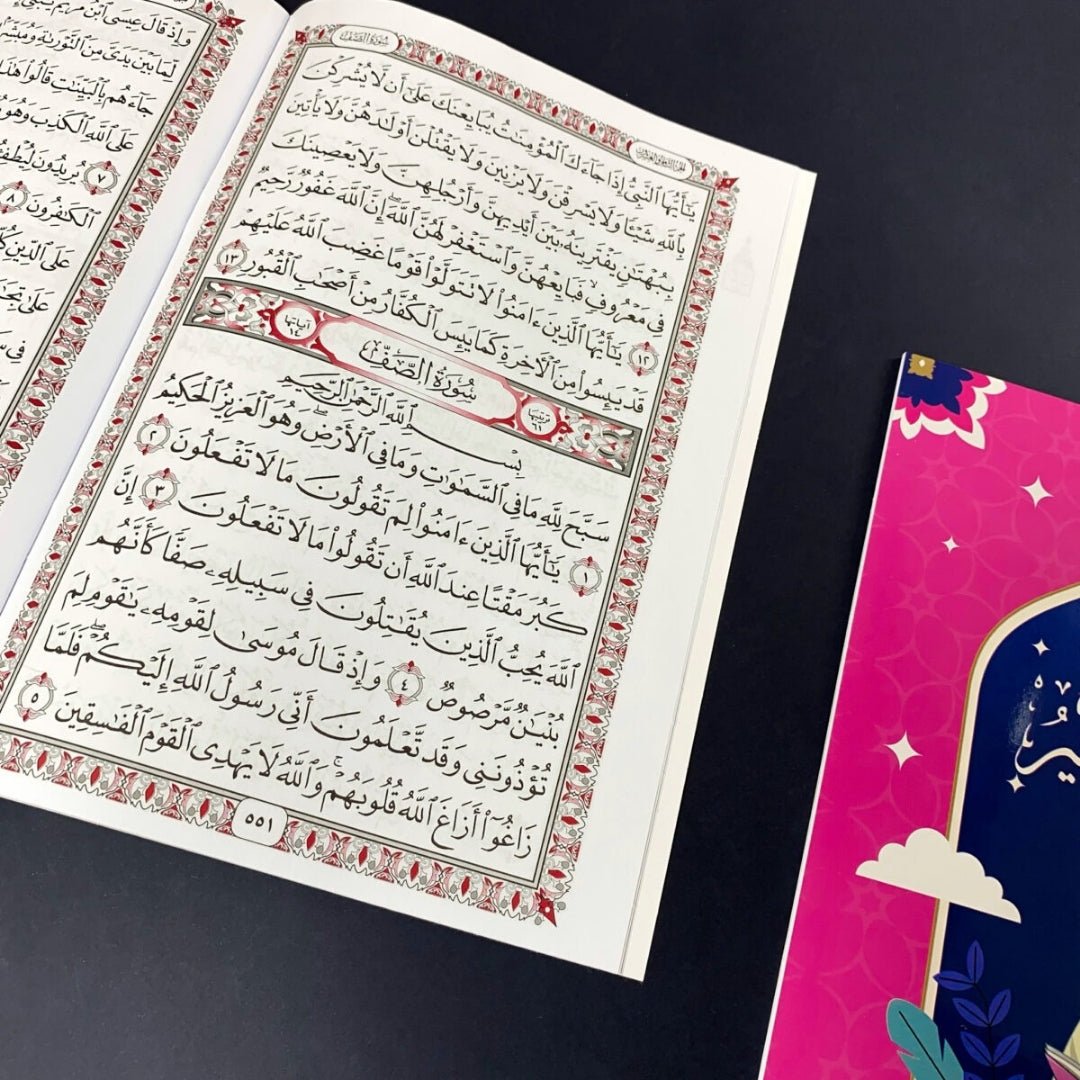 سُورَةُ الصَّفِّ
الجُزْءُ الثَّامِنُ وَالعِشْرُونَ
يَٰٓأَيُّهَا ٱلنَّبِيُّ إِذَا جَآءَكَ ٱلْمُؤْمِنَٰتُ يُبَايِعْنَكَ عَلَىٰٓ أَن لَّا يُشْرِكْنَ
بِٱللَّهِ شَيْـًٔا وَلَا يَسْرِقْنَ وَلَا يَزْنِينَ وَلَا يَقْتُلْنَ أَوْلَٰدَهُنَّ وَلَا يَأْتِينَ
بِبُهْتَٰنٍ يَفْتَرِينَهُۥ بَيْنَ أَيْدِيهِنَّ وَأَرْجُلِهِنَّ وَلَا يَعْصِينَكَ
فِى مَعْرُوفٍ فَبَايِعْهُنَّ وَٱسْتَغْفِرْ لَهُنَّ ٱللَّهَ إِنَّ ٱللَّهَ غَفُورٌ رَّحِيمٌ
١٢ يَٰٓأَيُّهَا ٱلَّذِينَ ءَامَنُوا۟ لَا تَتَوَلَّوْا۟ قَوْمًا غَضِبَ ٱللَّهُ عَلَيْهِمْ
قَدْ يَئِسُوا۟ مِنَ ٱلْءَاخِرَةِ كَمَا يَئِسَ ٱلْكُفَّارُ مِنْ أَصْحَٰبِ ٱلْقُبُورِ ١٣
ترتيبها ٦١ سُورَةُ الصَّفِّ آياتها ١٤
بِسْمِ ٱللَّهِ ٱلرَّحْمَٰنِ ٱلرَّحِيمِ
سَبَّحَ لِلَّهِ مَا فِى ٱلسَّمَٰوَٰتِ وَمَا فِى ٱلْأَرْضِ ۖ وَهُوَ ٱلْعَزِيزُ ٱلْحَكِيمُ
١ يَٰٓأَيُّهَا ٱلَّذِينَ ءَامَنُوا۟ لِمَ تَقُولُونَ مَا لَا تَفْعَلُونَ ٢
كَبُرَ مَقْتًا عِندَ ٱللَّهِ أَن تَقُولُوا۟ مَا لَا تَفْعَلُونَ ٣ إِنَّ
ٱللَّهَ يُحِبُّ ٱلَّذِينَ يُقَٰتِلُونَ فِى سَبِيلِهِۦ صَفًّا كَأَنَّهُم
بُنْيَٰنٌ مَّرْصُوصٌ ٤ وَإِذْ قَالَ مُوسَىٰ لِقَوْمِهِۦ يَٰقَوْمِ لِمَ
تُؤْذُونَنِى وَقَد تَّعْلَمُونَ أَنِّى رَسُولُ ٱللَّهِ إِلَيْكُمْ ۖ فَلَمَّا
زَاغُوٓا۟ أَزَاغَ ٱللَّهُ قُلُوبَهُمْ ۚ وَٱللَّهُ لَا يَهْدِى ٱلْقَوْمَ ٱلْفَٰسِقِينَ ٥
٥٥١
وَإِذْ قَالَ عِيسَى ٱبْنُ مَرْيَمَ يَٰبَنِىٓ
لِّمَا بَيْنَ يَدَىَّ مِنَ ٱلتَّوْرَىٰةِ وَمُبَشِّرًۢا
جَآءَهُم بِٱلْبَيِّنَٰتِ قَالُوا۟ هَٰذَا
عَلَى ٱللَّهِ ٱلْكَذِبَ وَهُوَ
٧ يُرِيدُونَ لِيُطْفِـُٔوا۟
ٱلْكَٰفِرُونَ ٨
عَلَى ٱلدِّينِ
عَلَىٰ
فِى